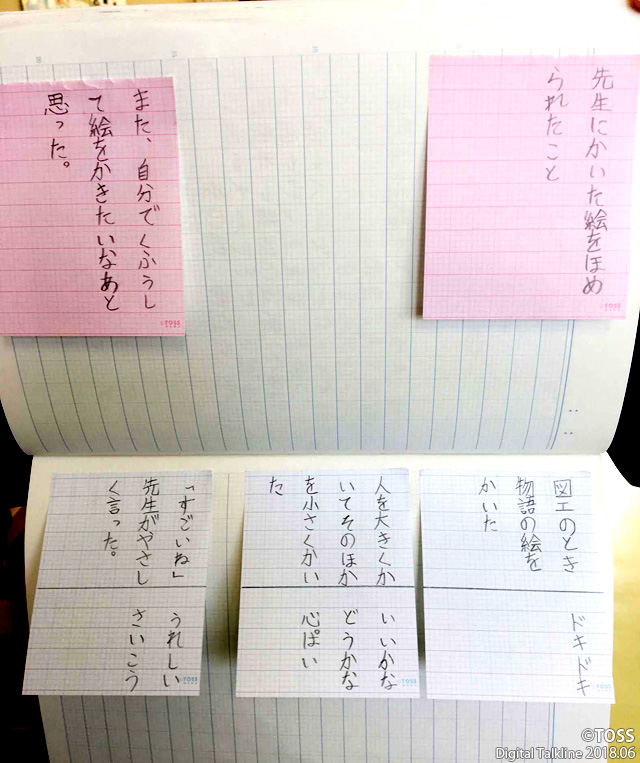 先生にかいた絵をほめ
られたこと
©TOSS
また、自分でくふうし
て絵をかきたいなあと
思った。
©TOSS
図工のとき
物語の絵を
かいた
ドキドキ
TOSS
人を大きくか
いてそのほか
を小さくかい
た
いいかな
どうかな
心ぱい
TOSS
「すごいね」
先生がやさし
く言った。
うれしい
さいこう
TOSS
©TOSS
Digital Talkline 2018.06